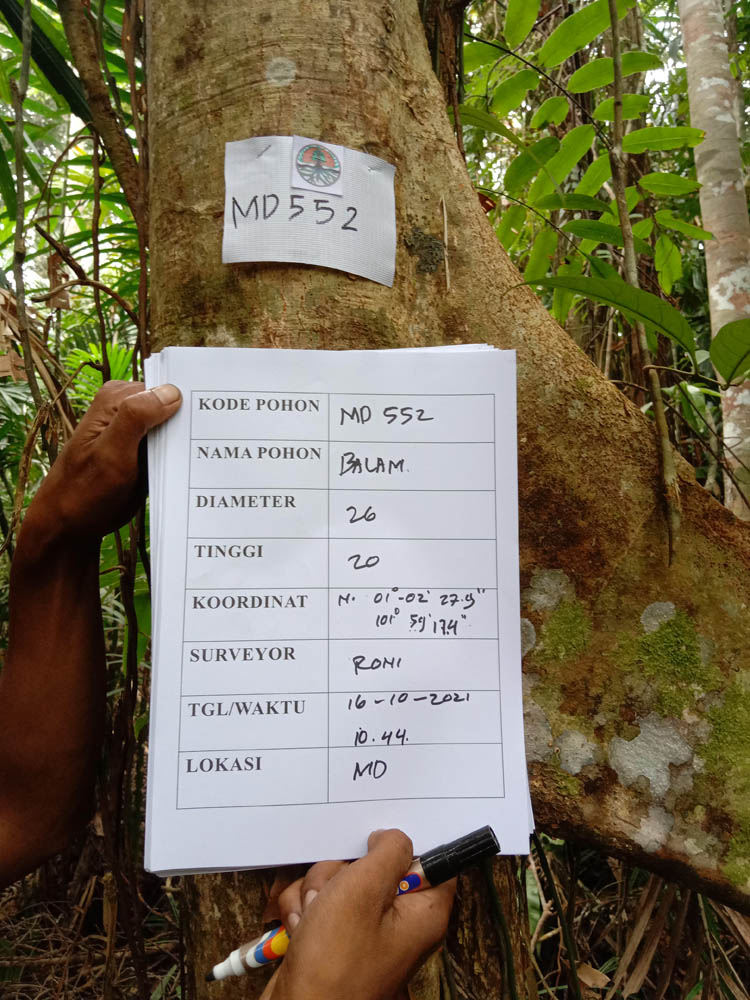 MD 552
KODE POHON MD 552
NAMA POHON BALAM.
DIAMETER 26
TINGGI 20
KOORDINAT N. 01°-02' 27.9"
101° 59' 17.4"
SURVEYOR RONI
TGL/WAKTU 16-10-2021
10.44.
LOKASI MD